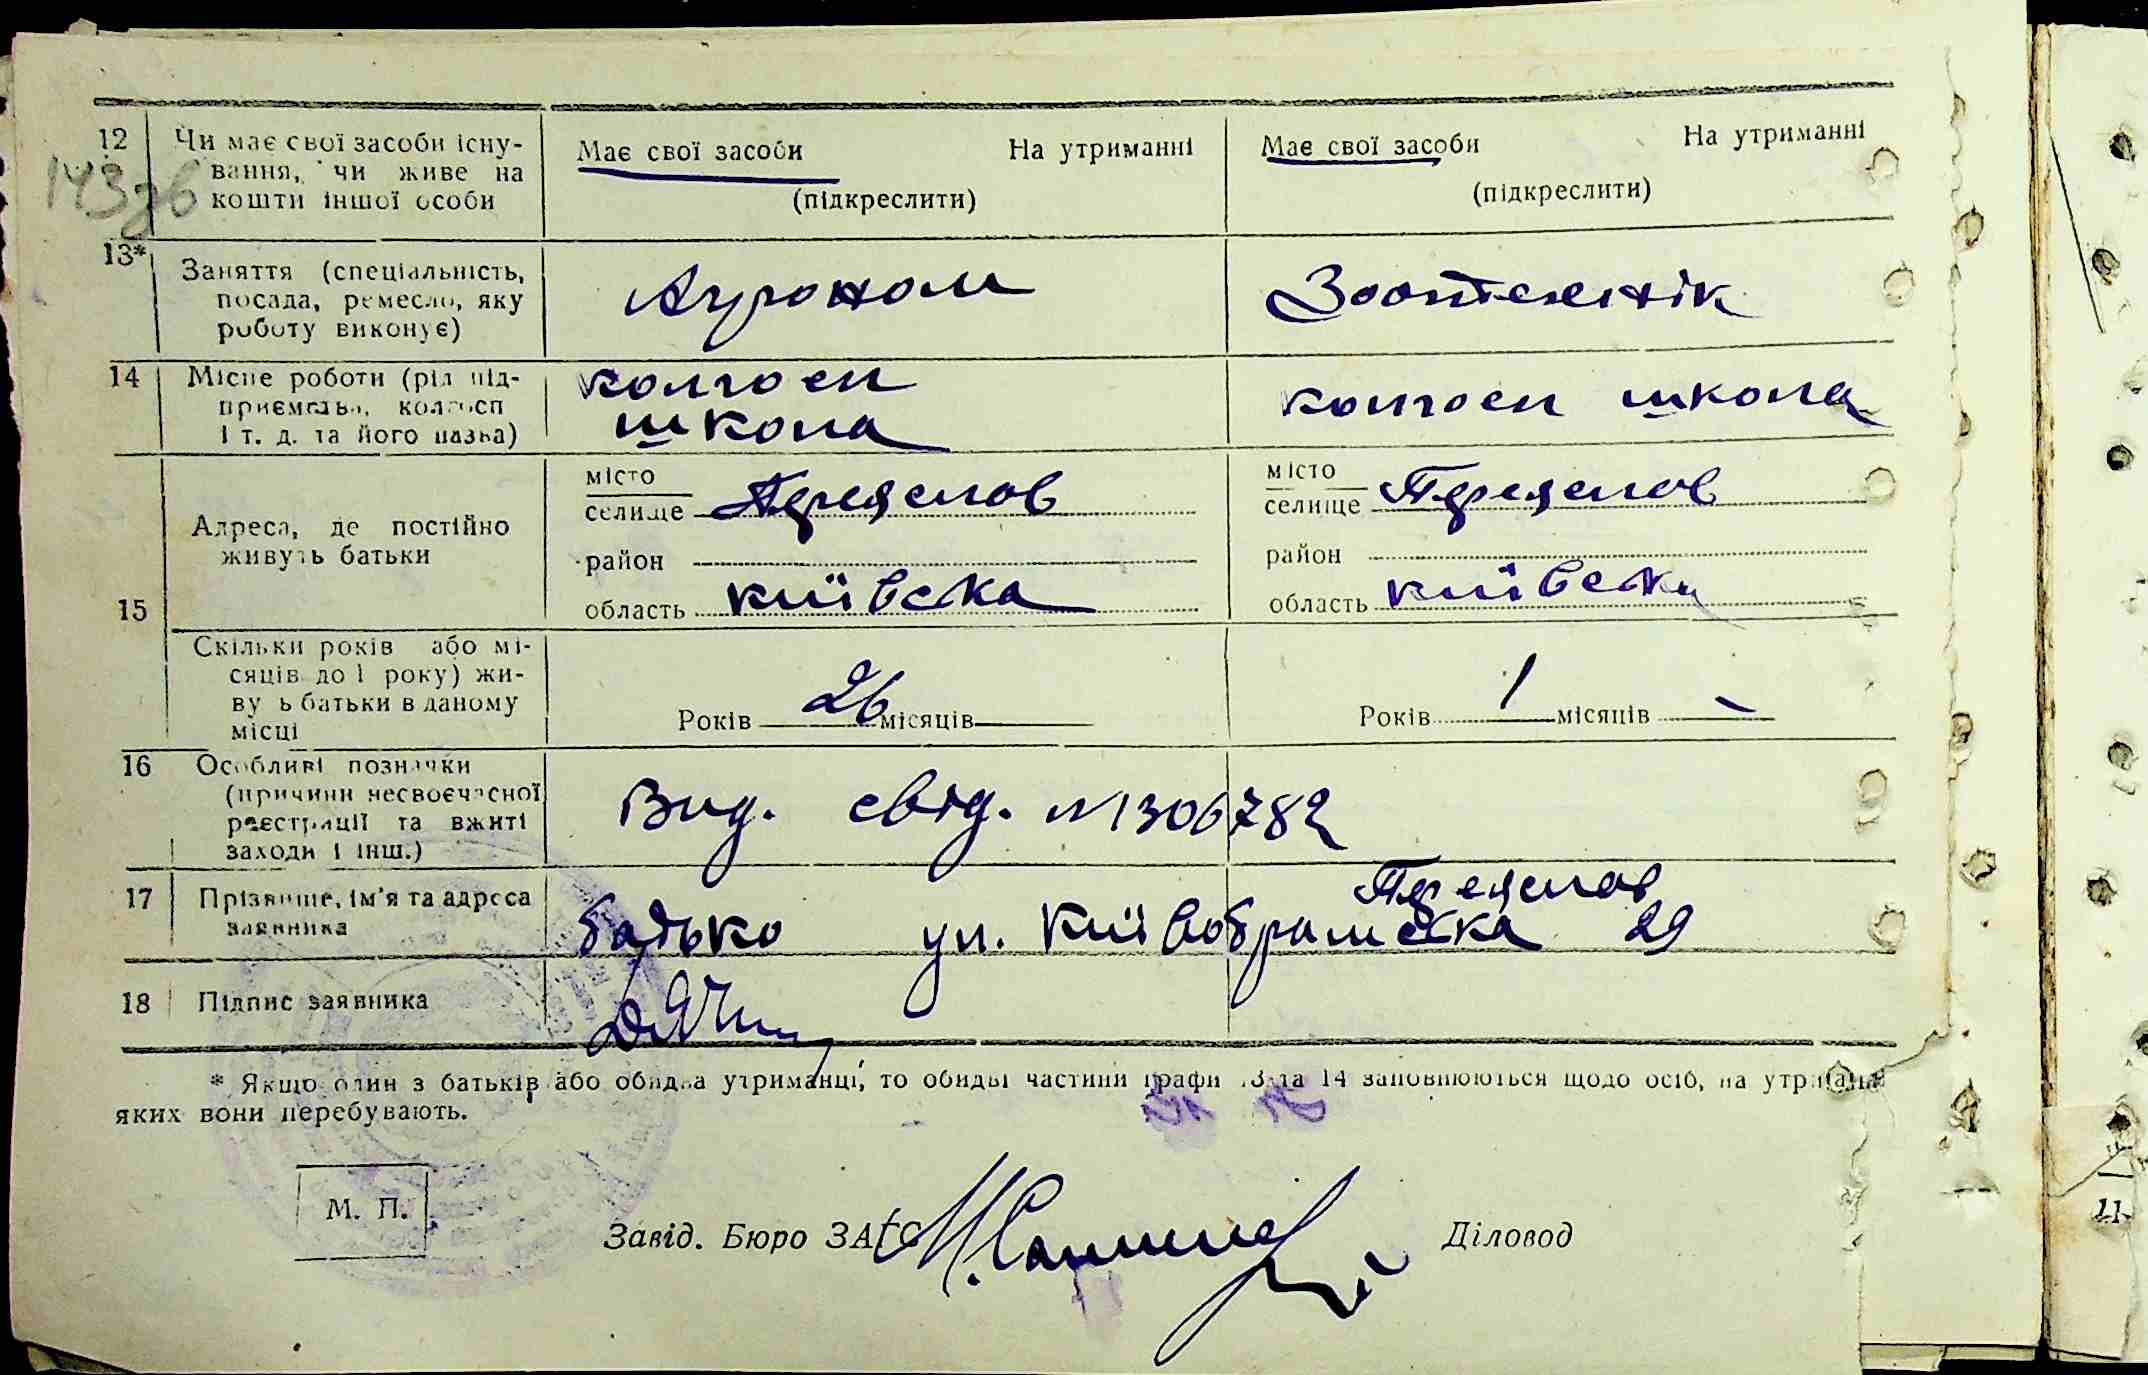 12 Чи має свої засоби існу-
вання, чи живе на
кошти іншої особи
Має свої засоби На утриманні
(підкреслити)
Має свої засоби На утриманні
(підкреслити)
143зв
13* Заняття (спеціальність,
посада, ремесло, яку
роботу виконує)
Агроном
Зоотехнік
14 Місце роботи (рід під-
приємства, колгосп
і т. д. та його назва)
колгосп
школа
колгосп школа
15 Адреса, де постійно
живуть батьки
місто
селище Переяслов
район
область Київська
місто
селище Переяслов
район
область Київська
Скільки років або мі-
сяців до 1 року) жи-
вуть батьки в даному
місці
Років 26 місяців
Років 1 місяців –
16 Особливі позначки
(причини несвоєчасної
реєстрації та вжиті
заходи і інш.)
Вид. свід. №1306782
17 Прізвище, ім'я та адреса
заявника
Переяслов
батько ул. Київобрамська 29
18 Підпис заявника
* Якщо один з батьків або обидва утриманці, то обидві частини графи 13 та 14 заповнюються щодо осіб, на утриманні
яких вони перебувають.
М. П.
Завід. Бюро ЗАГС
Діловод
11